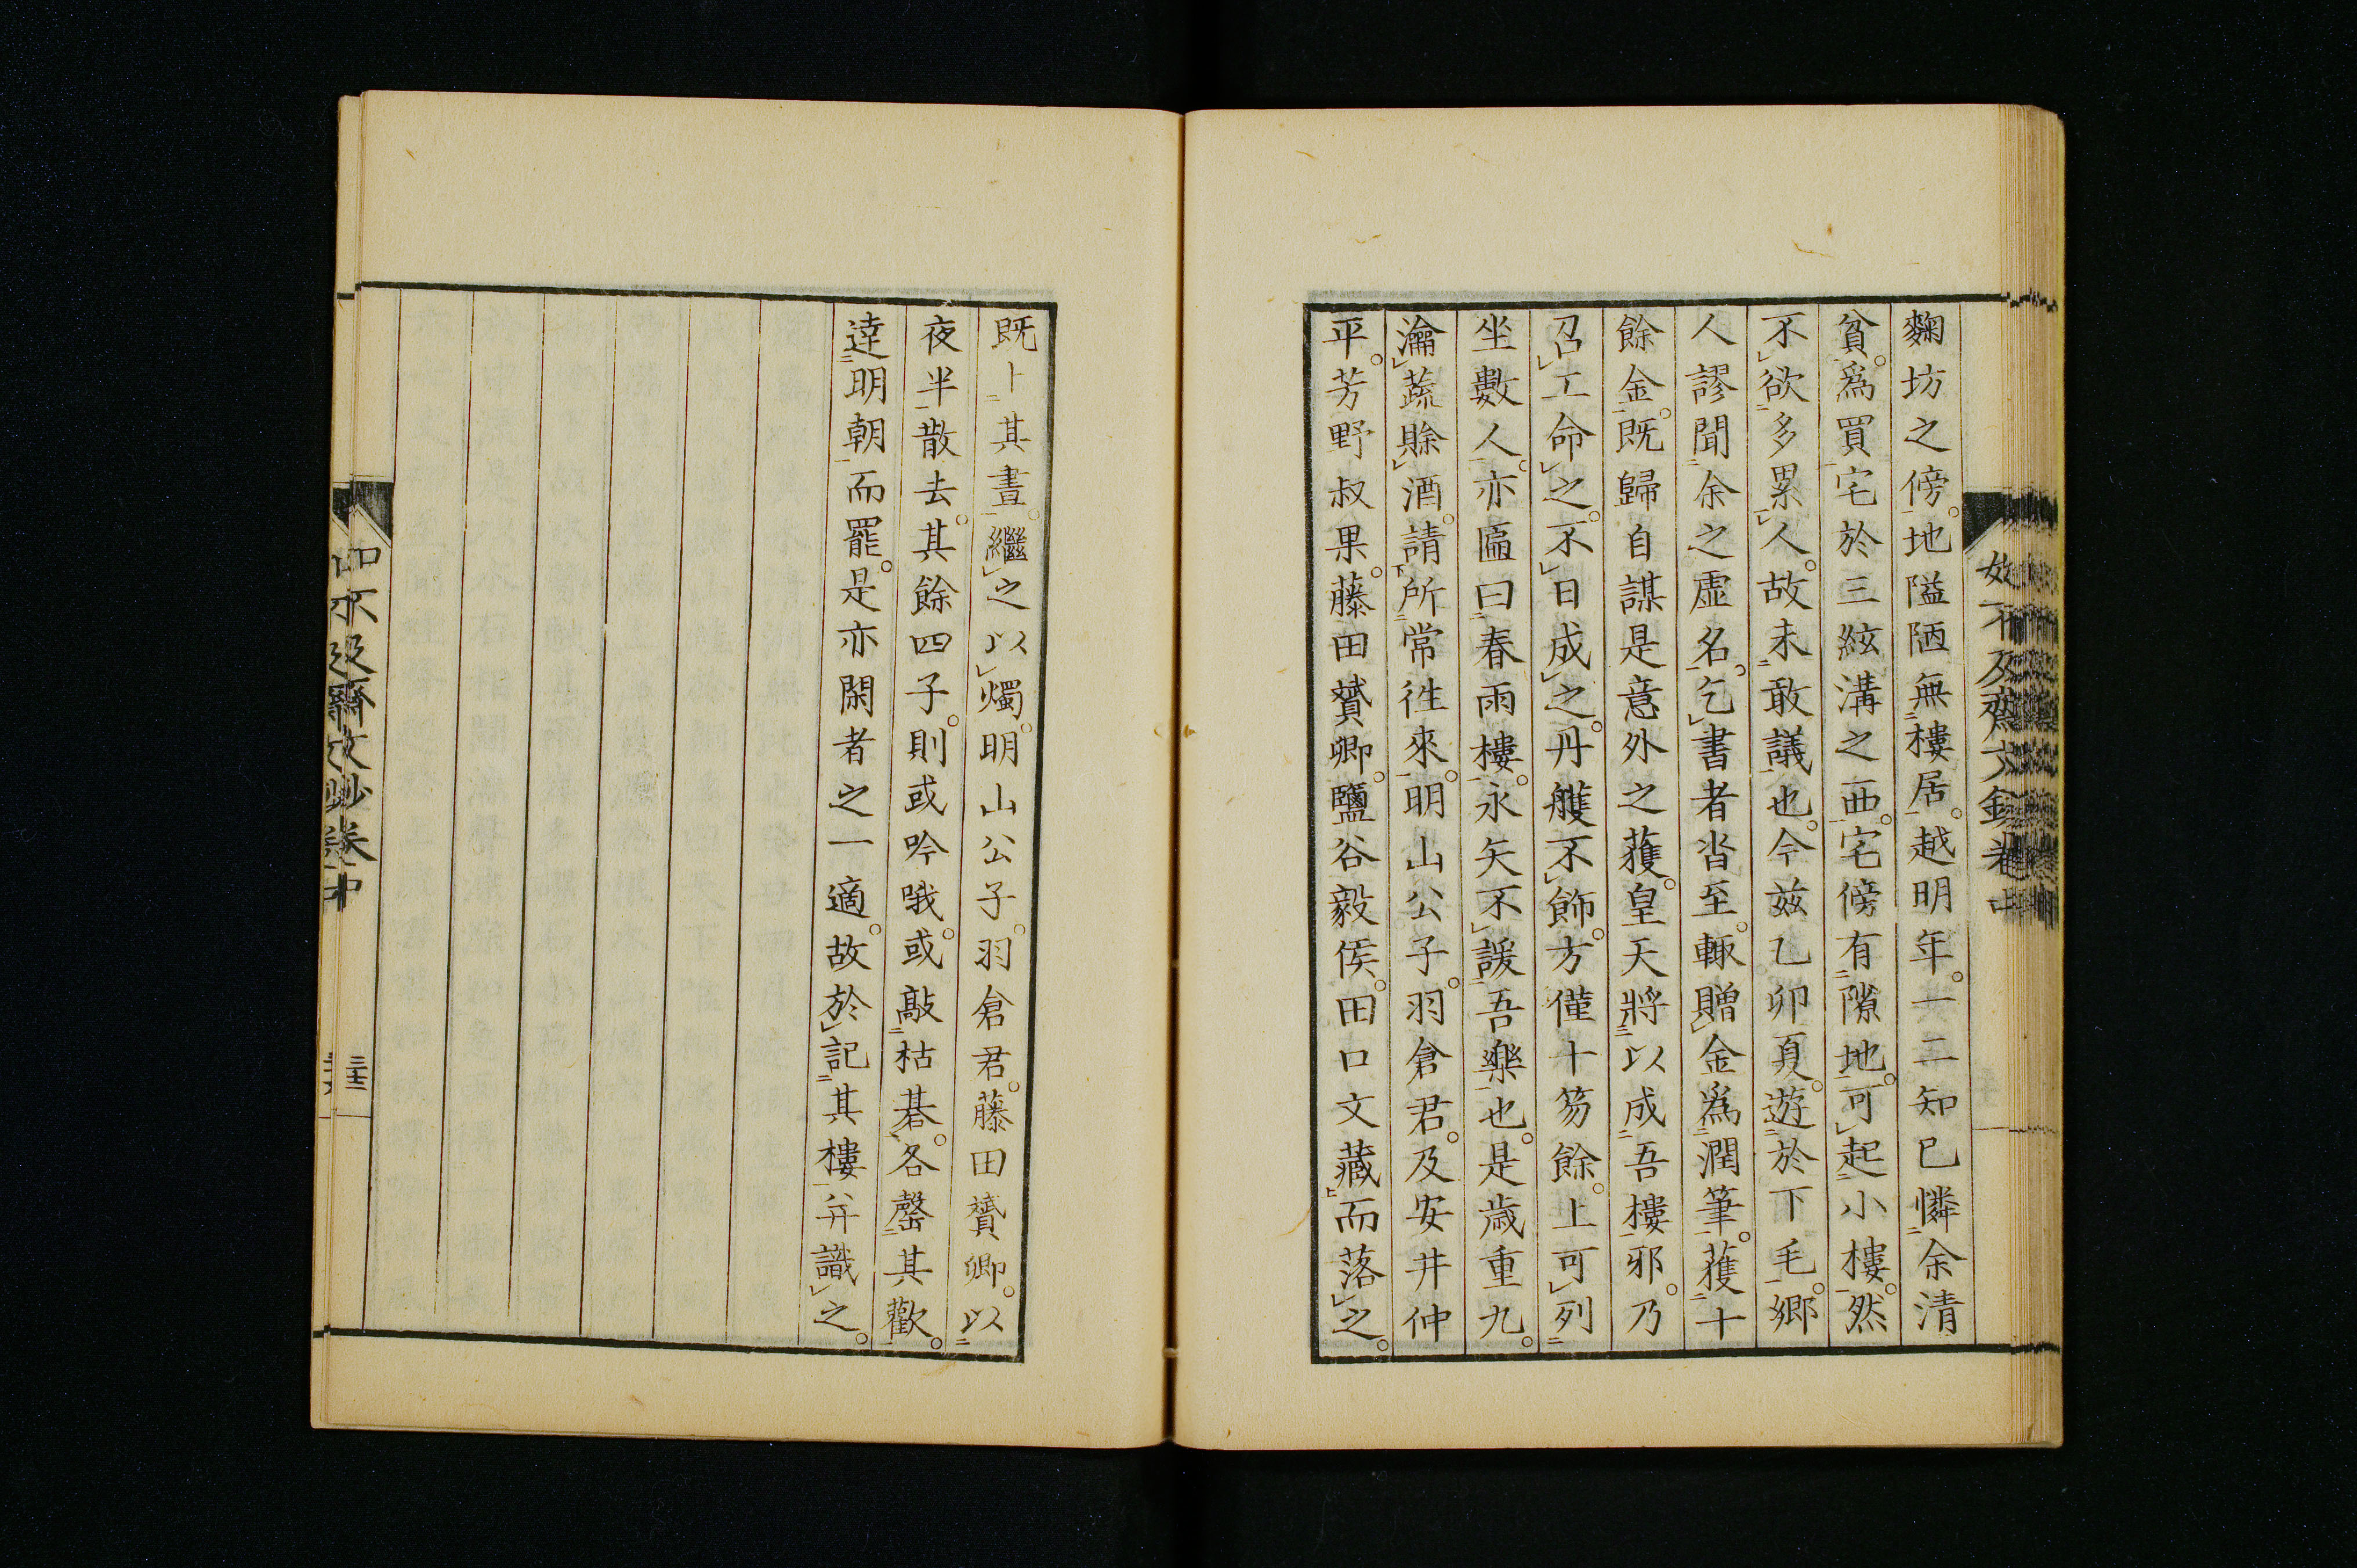 麴坊之傍。地隘陋無樓居。越明年。一二知已憐余清
貧。爲買宅於三絃溝之西。宅傍有隙地。可起小樓。然
不欲多累人。故未敢議也。今茲乙卯夏。遊於下毛。鄉
人謬聞余之虛名。乞書者沓至。輙贈金爲潤筆。獲十
餘金。既歸自謀是意外之獲。皇天將以成吾樓邪。乃
召工命之。不日成之。丹雘不飾。方僅十笏餘。上可列
坐數人。亦匾曰春雨樓。永矢不諼吾樂也。是歲重九。
瀹蔬賒酒。請所常徃來。明山公子。羽倉君。及安井仲
平。芳野叔果。藤田贇卿。鹽谷毅侯。田口文藏而落之。
既卜其晝。繼之以燭。明山公子。羽倉君。藤田贇卿。以
夜半散去。其餘四子。則或吟哦。或敲枯碁。各罄其歡。
達明朝而罷。是亦閑者之一適。故於記其樓幷識之。
如不及齋文鈔卷中
如不及齋文鈔卷中